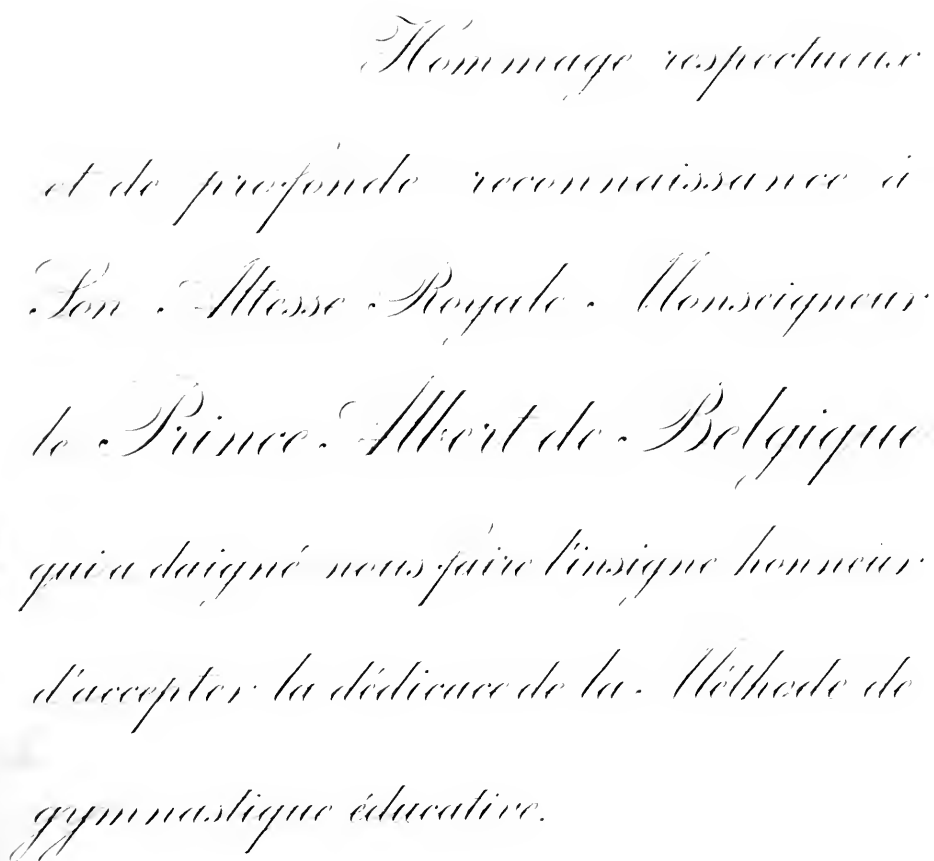 Hommage respectueux
et de profonde reconnaissance à
Son Altesse Royale Monseigneur
le Prince Albert de Belgique
qui a daigné nous faire l'insigne honneur
d'accepter la dédicace de la Méthode de
gymnastique éducative.